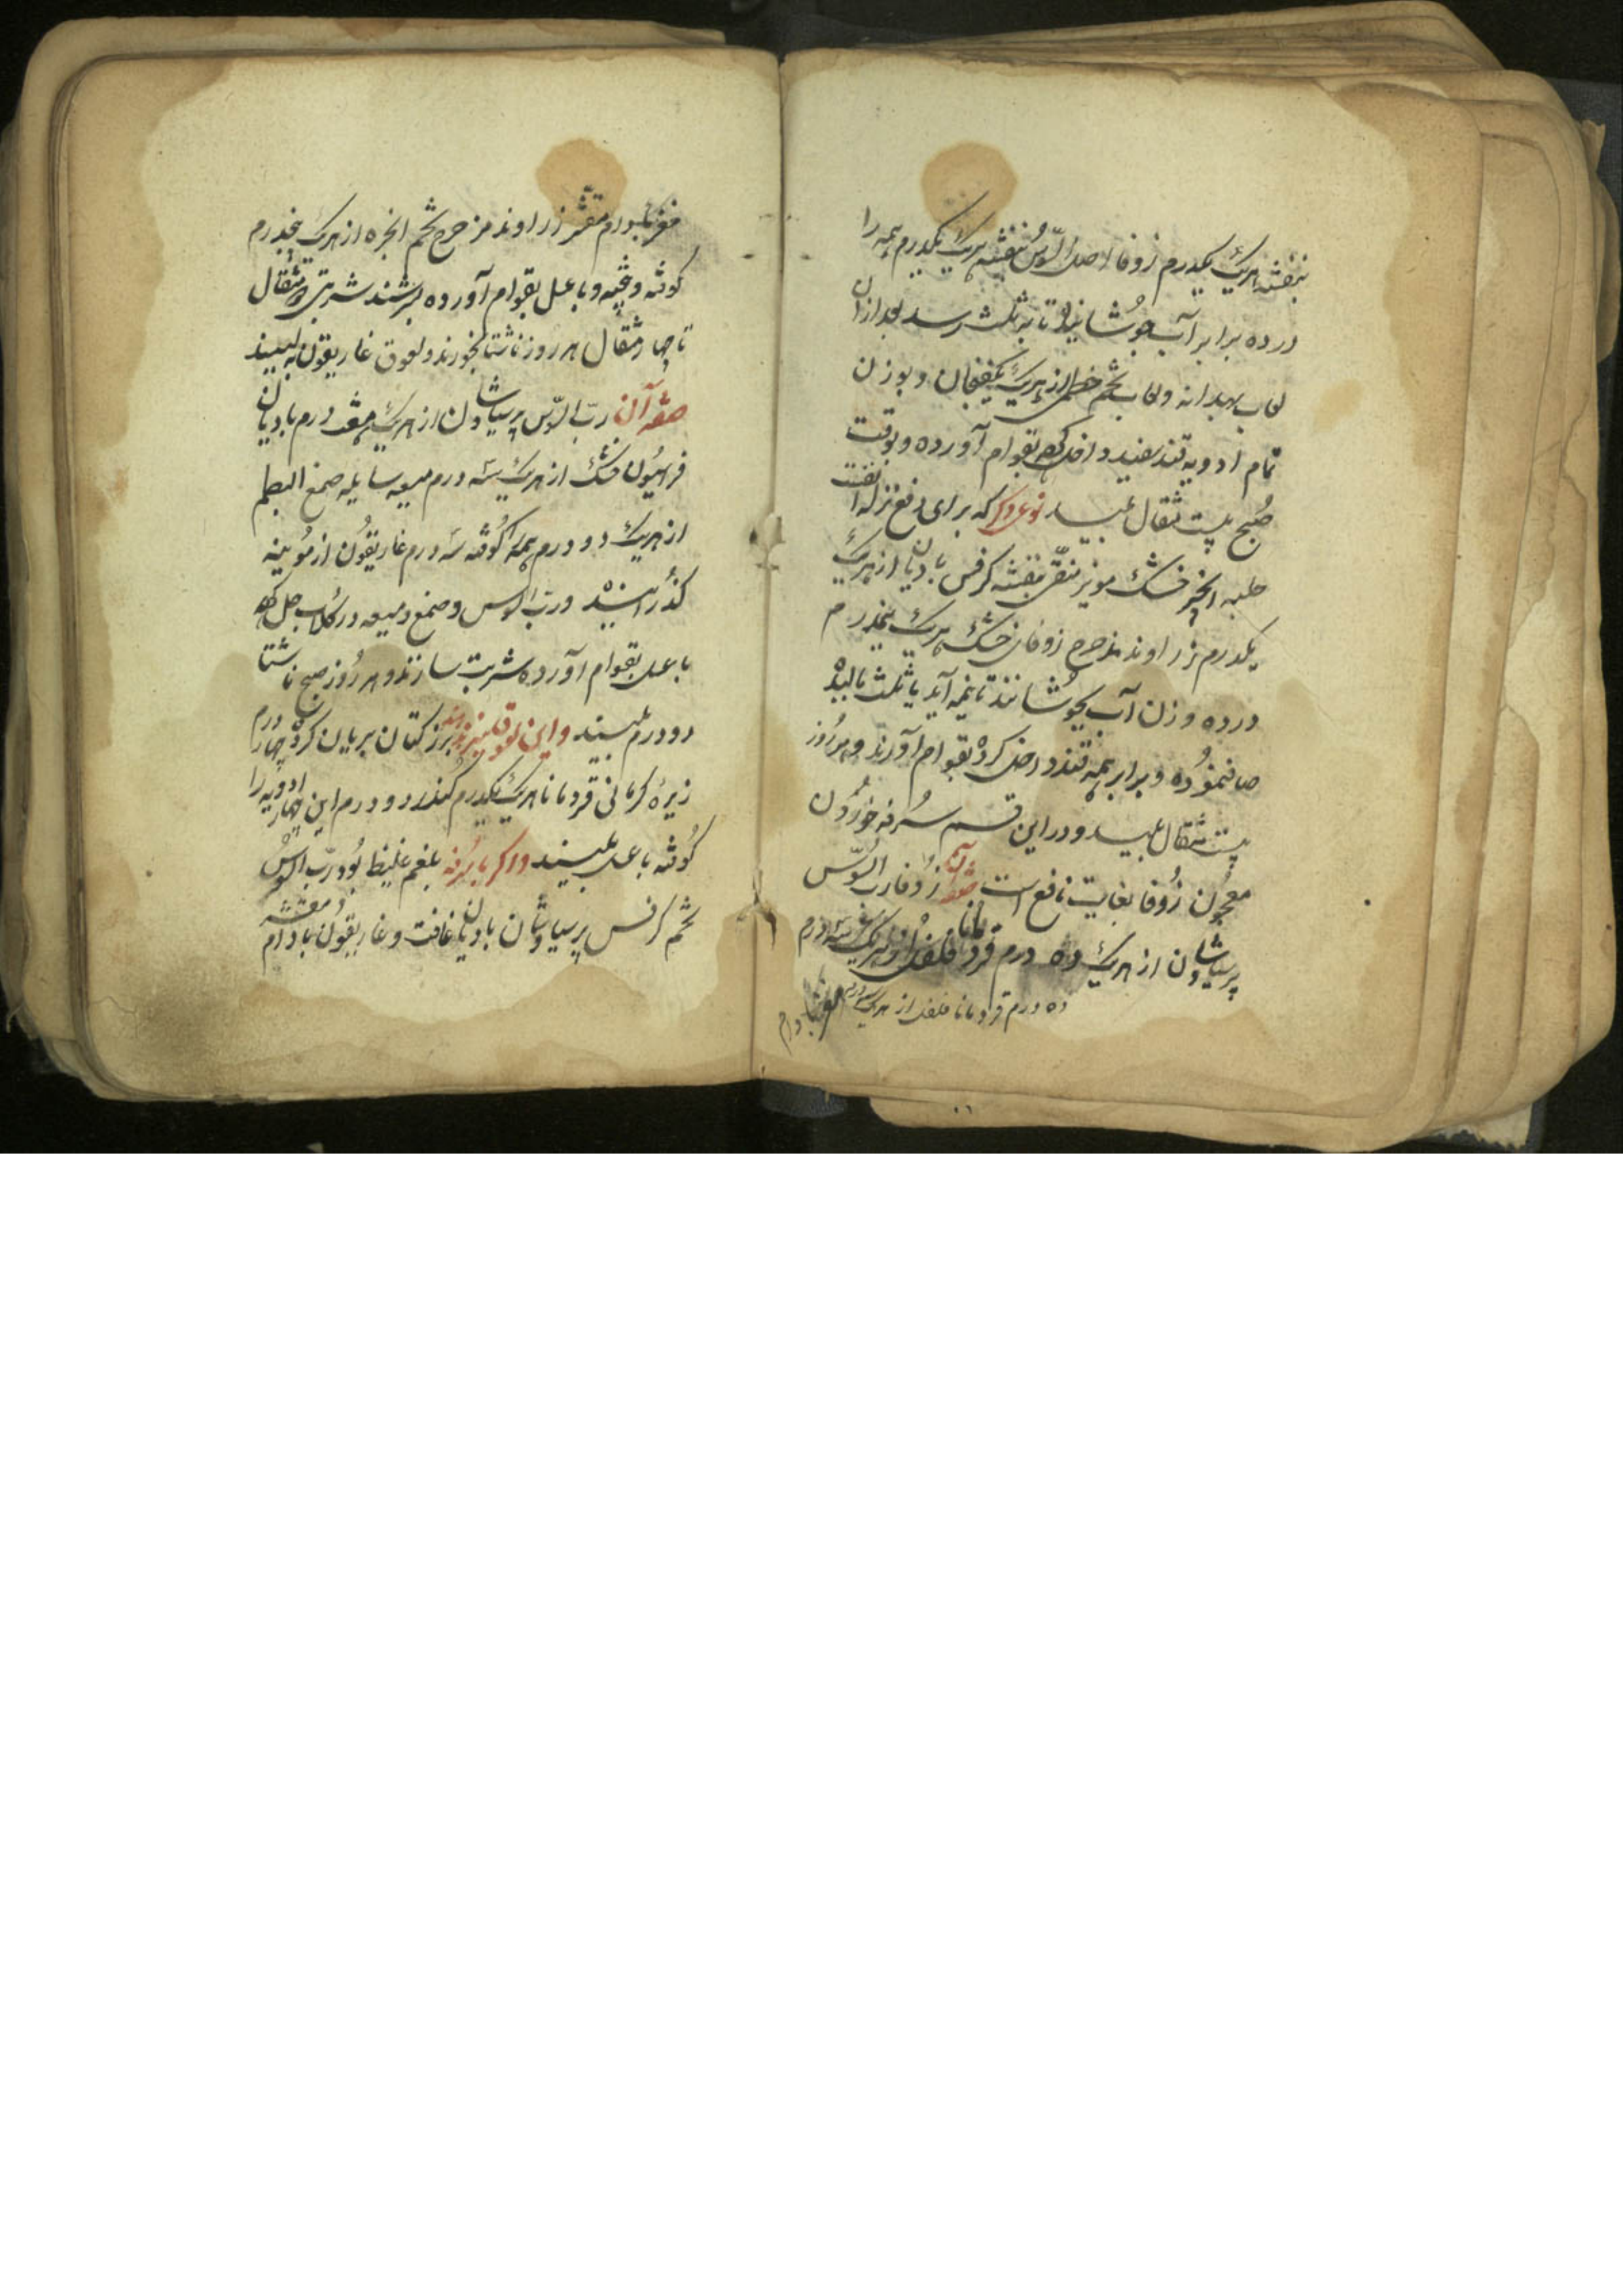 بنفشه هریک یکدرم زوفا اصل السّوس بنفشه هریک یکدرم همه را
در ده برابر آب جوشانیده تا به ثلث رسد بعد ازان
لعاب بهدانه ولعاب تخم خطمی از هریک یکفنجان و بوزن
تمام ادویه قند سفید داخل کرده بقوام آورده وبوقت
صُبح بیست مثقال بلیسد نوع دیکر که برای دفع نزله
حلبه انجیر خشک مویز منقّی بنفشه کرفس بادیان از هریک
یکدرم زراوند مدحرج زوفای خشک هریک پنجدرم
در ده وزن آب بجوشانند تا بنیمه آید یا ثلث مالیده
صاف نموُده و برابر همه قند داخل کرده بقوام آورند و هر رُوز
بیست مثقال بلیسد و در این قسم سُرفه خوُردن
معجُون زُوفا بغایت نافع است صفة آن زُوفا ربّ السُّوس
پرسیاوشان از هریک ده درم قردمانا فلفل از هریک سه درم
ده درم قردمانا فلفل از هریک سه درم مغز بادام
مغز بادام مقشّر زراوند مدحرج تخم انجره از هریک پنجدرم
کوفته و بیخته و با عسل بقوام آورده بسرشند شربتی دو مثقال
تا چهار مثقال هر روز ناشتا بخورند و لعوق غاریقون بلیسند
صفة آن ربّ السّوس پرسیاوشان از هریک هفت درم بادیان
فراسیُون خشک از هریک سه درم میعه سایله صمغ البطم
از هریک دو درم همه را کُوفته سه درم غاریقُون از مُوینه
کذُرانیده و ربّ السوس و صمغ و میعه در کُلاب حل کرده
با عسل بقوام آورده شربت سازند و هر رُوز صبح ناشتا
دو درم بلیسند و این لعوق نیز بزر کتان بریان کرده چهار درم
زیرهٔ کرمانی قردمانا هریک یکدرم کُندر دو درم این چهار ادویه را
کُوفته با عسل بلیسند واکر با سُرفه بلغم غلیظ بُود ربّ السُّوس
تخم کرفس پرسیاوشان بادیان غافت و غاریقُون بادام مقشّر